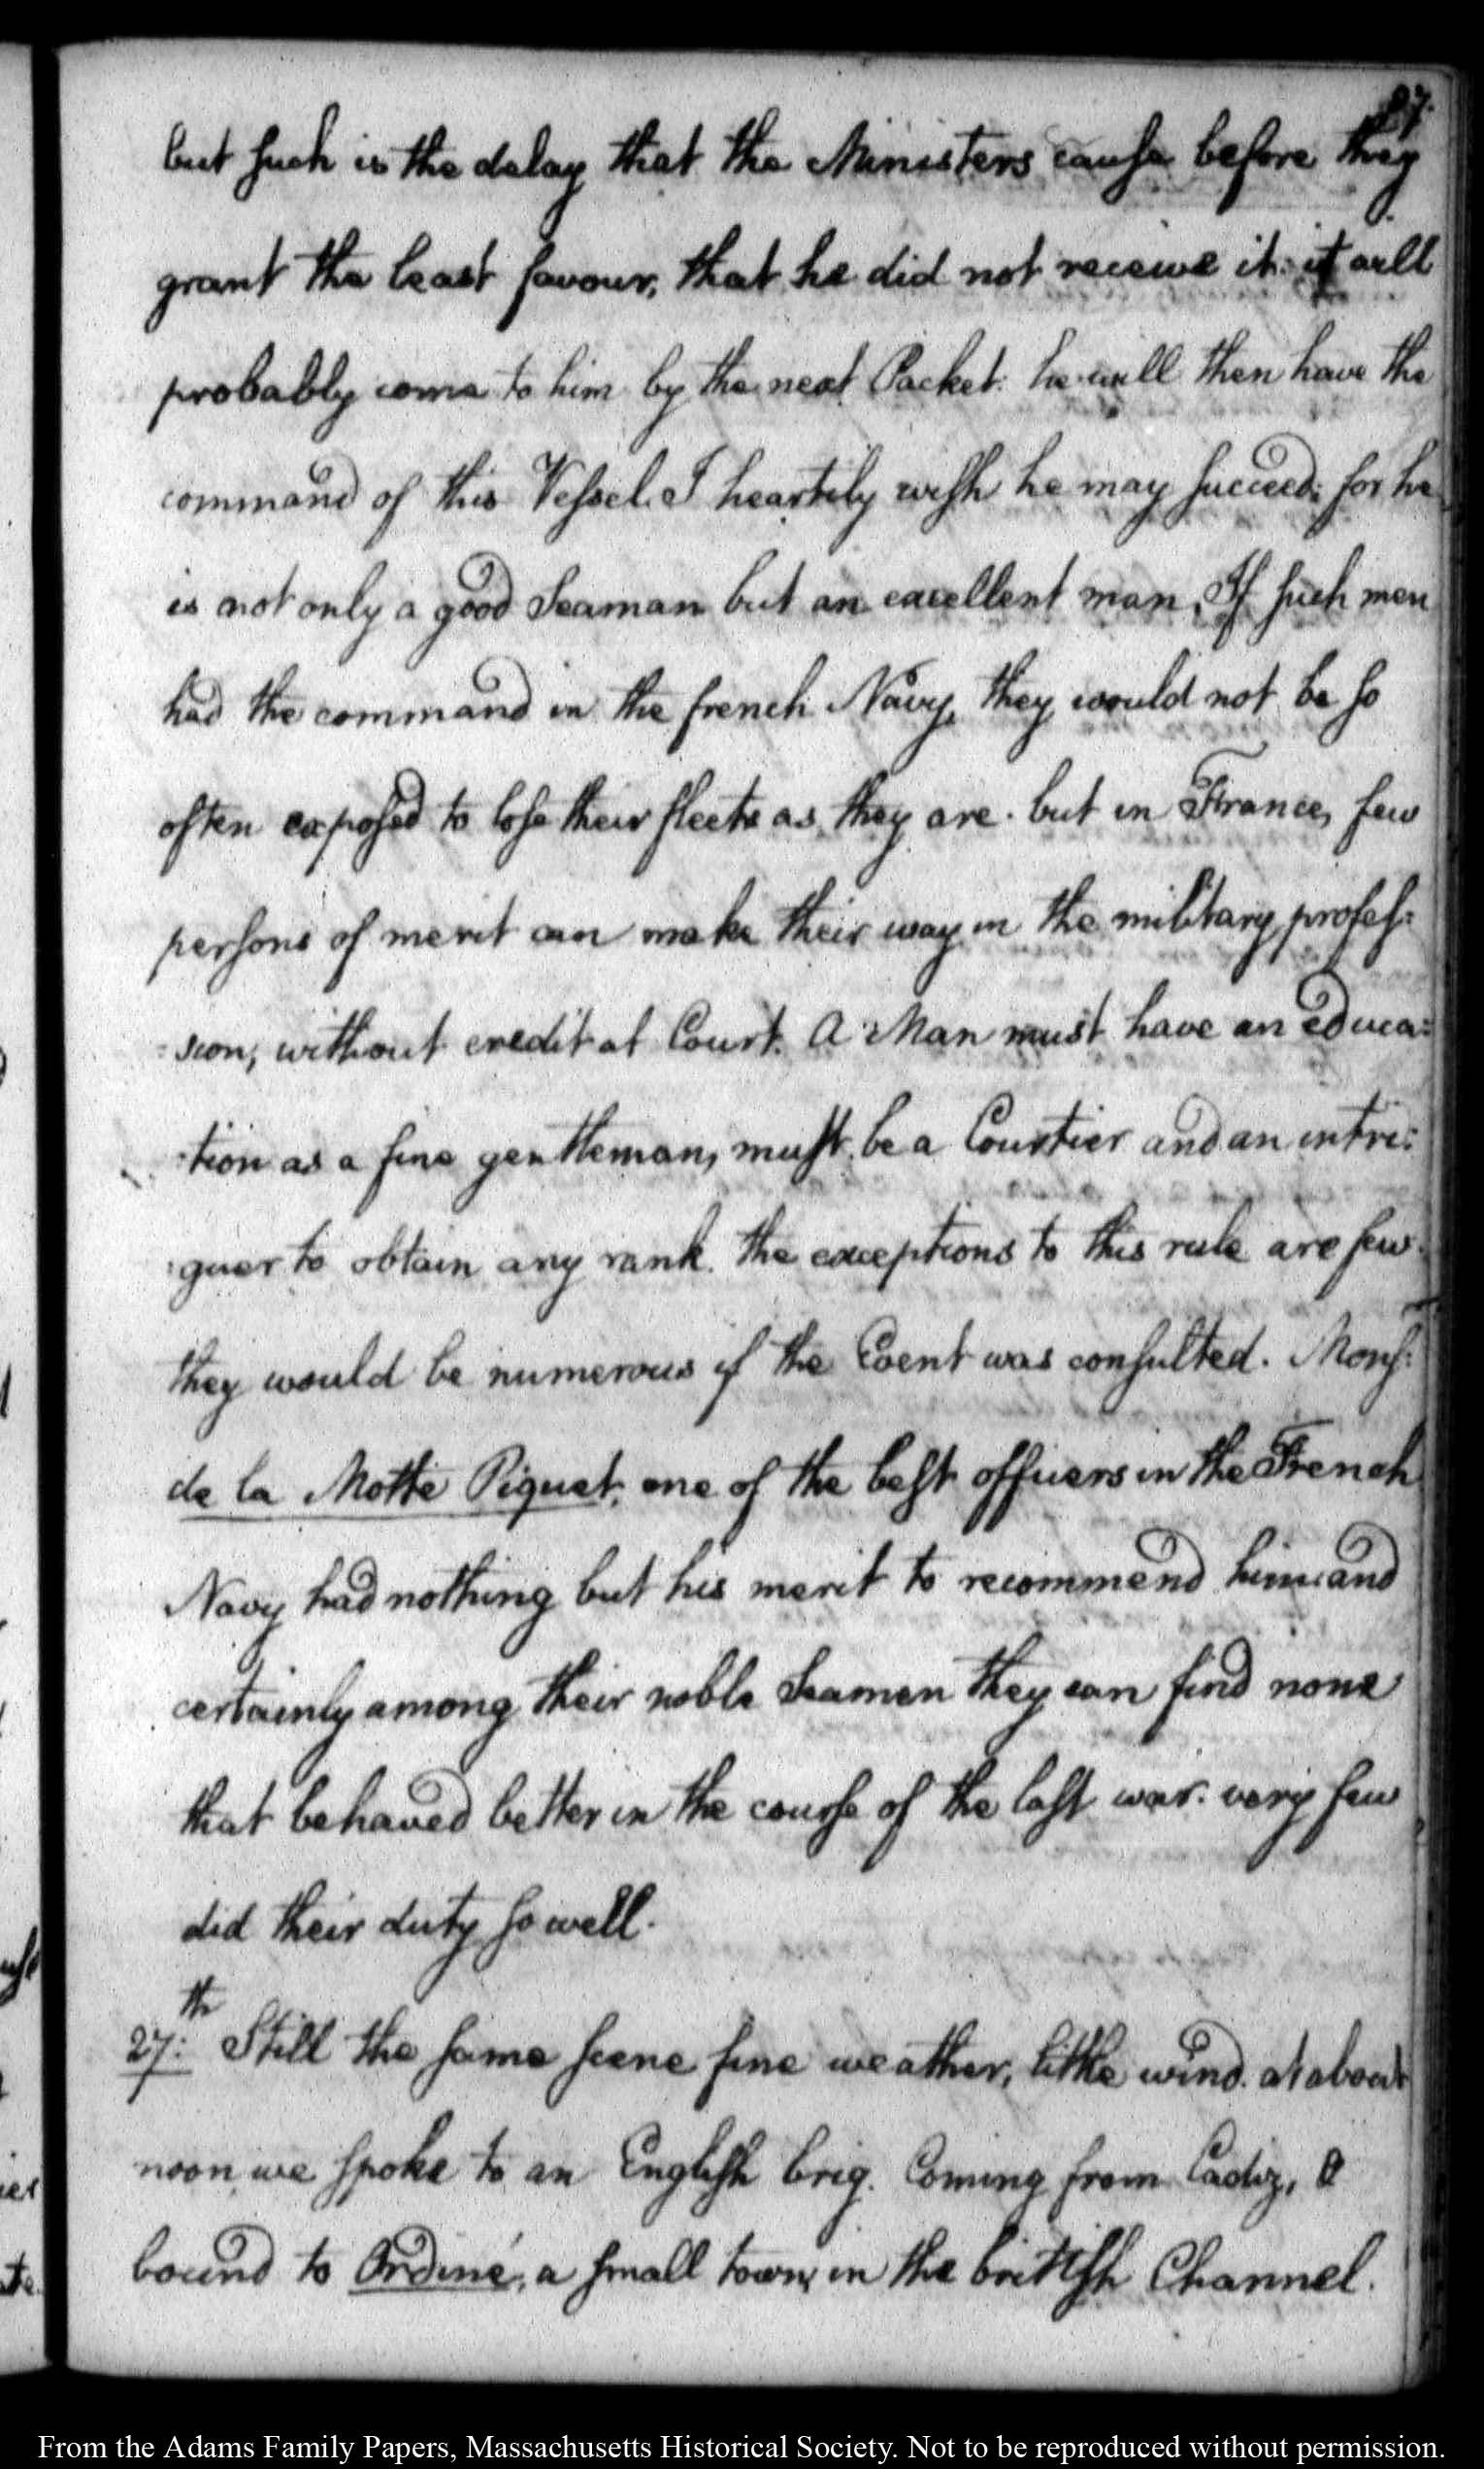 27.
but such is the delay that the Ministers cause before they
grant the least favour, that he did not receive it: it will
probably come to him by the next Packet: he will then have the
command of this Vessel. I heartily wish he may succeed: for he
is not only a good Seaman but an excellent man. If such men
had the command in the french Navy, they would not be so
often exposed to lose their fleets as they are. but in France, few
persons of merit can make their way in the military profes:
:sion, without credit at Court. A Man must have an educa:
:tion as a fine gentleman, must be a Courtier and an intri:
:guer to obtain any rank. the exceptions to this rule are few.
they would be numerous if the Event was consulted. Mons:
de la Motte Piquet, one of the best officers in the French
Navy had nothing but his merit to recommend him: and
certainly among their noble Seamen they can find none
that behaved better in the course of the last war. very few
did their duty so well.
27:th Still the same scene fine weather, little wind. at about
noon we spoke to an English brig. Coming from Cadiz, &
bound to Ordiné, a small town, in the british Channel.
From the Adams Family Papers, Massachusetts Historical Society. Not to be reproduced without permission.